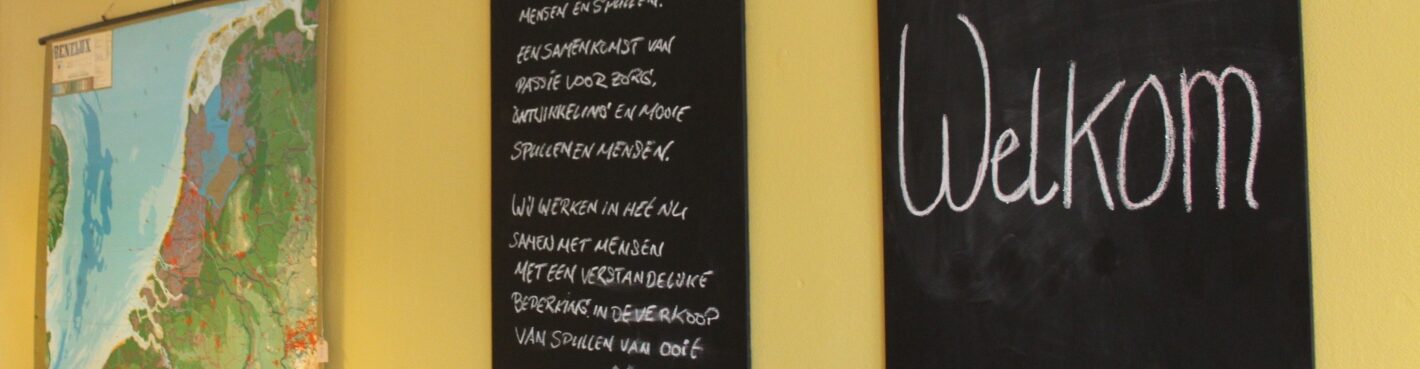 BENELUX
MENSEN EN SPULLEN.
EEN SAMENKOMST VAN
PASSIE VOOR ZORG,
ONTWIKKELING EN MOOIE
SPULLEN EN MENSEN.
WIJ WERKEN IN HET NU
SAMEN MET MENSEN
MET EEN VERSTANDELIJKE
BEPERKING, IN DE VERKOOP
VAN SPULLEN VAN OOIT
Welkom